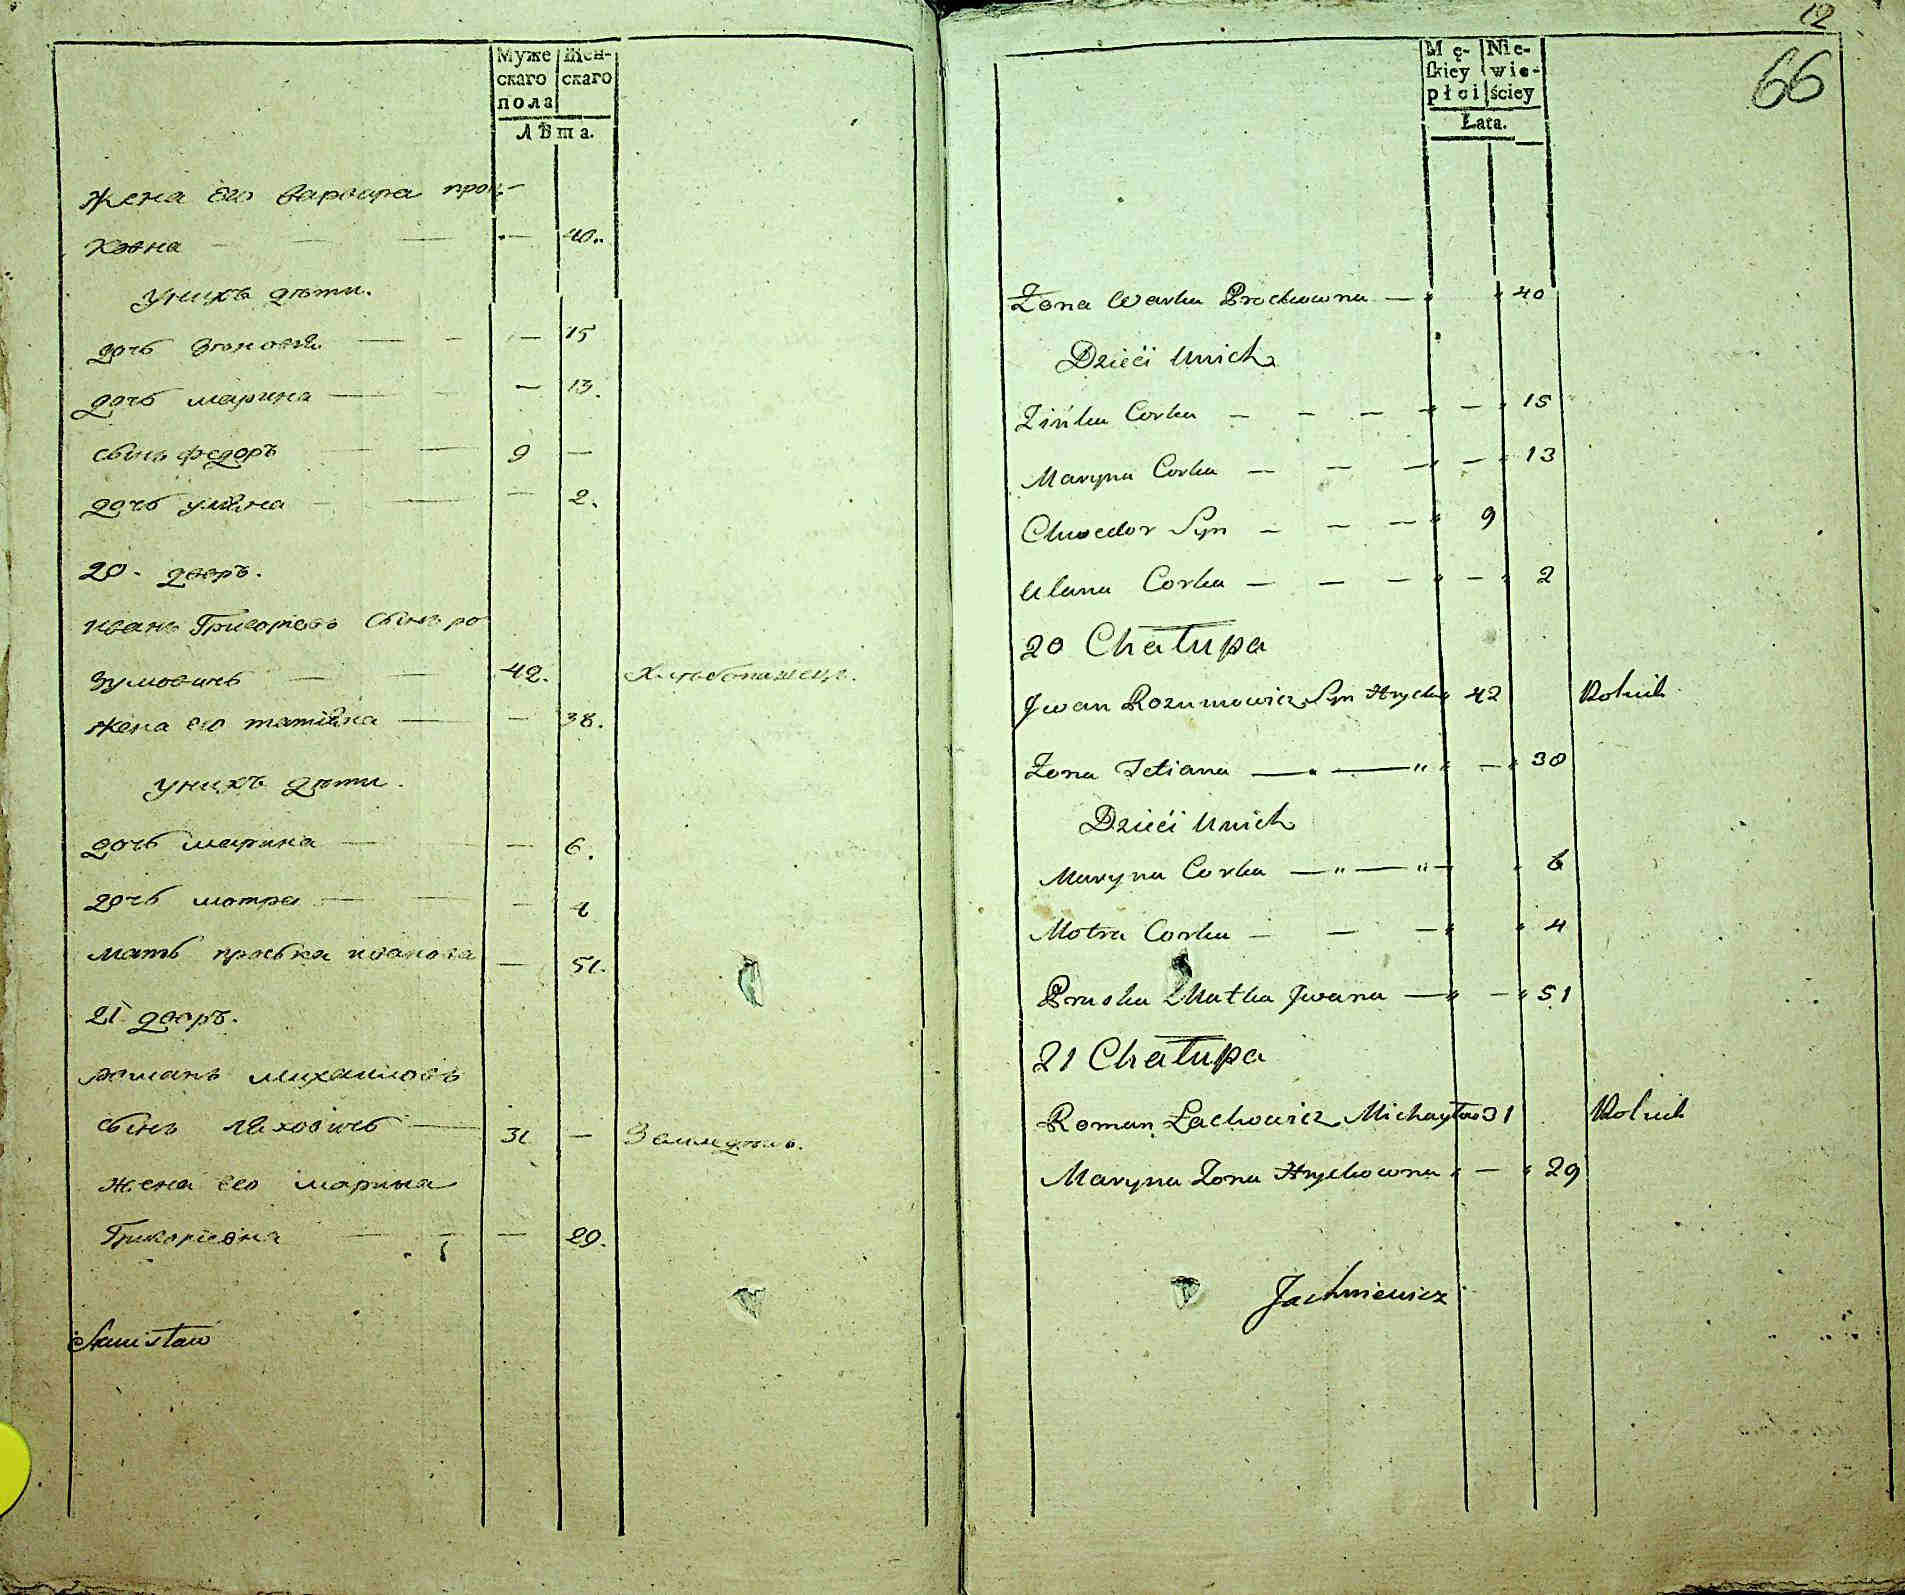 Муже скаго пола
Жен- скаго
Лѣта.
жена его варвара прон-
ховна — 40.
У нихъ дѣти.
дочь — 15
дочь марина — 13.
сынъ федоръ 9 —
дочь уляна — 2.
20. дворъ.
иванъ Григорьевъ сынъ ро
зумовичъ 42. Хлѣбопашецъ.
жена его татіяна — 38.
У нихъ дѣти.
дочь марина — 6.
дочь мотра — 4
мать проська иванова — 51.
21 дворъ.
романъ михаиловъ
сынъ ляховичъ 31 —
жена его марина
Григоріевна — 29.
Stanisław
12
66
Mę- skiey płci
Nie- wie- ściey
Łata.
Żona Warka Prochowna — 40
Dzieći Unich
Zińka Corka — 15
Maryna Corka — 13
Chwedor Syn — 9
Ulana Corka — 2
20 Chałupa
Jwan Rozumowicz Syn Hryck 42 Rolnik
Żona Tetiana — 38
Dzieći Unich
Maryna Corka — 6
Motra Corka — 4
Pruska Matka Jwana — 51
21 Chałupa
Roman Łachowicz Michayłow 31 Rolnik
Maryna Żona Hrychowna — 29
Jachniewicz